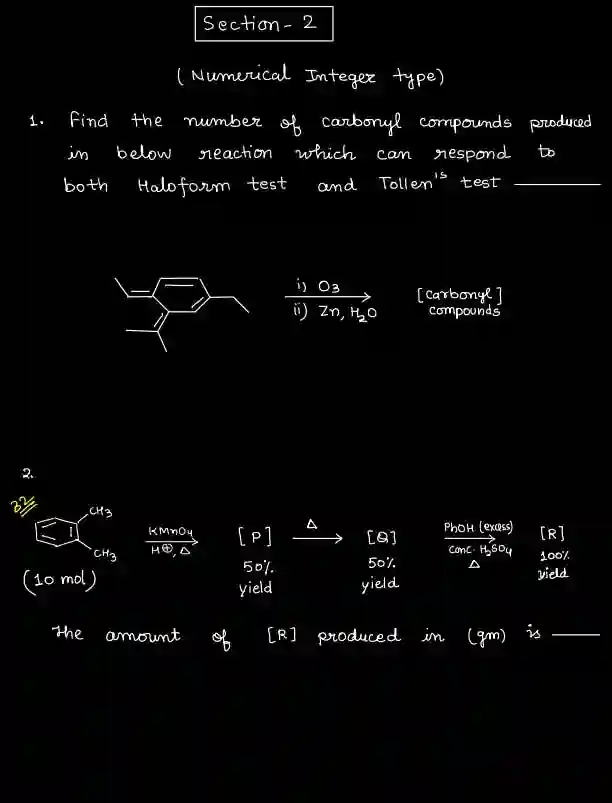 Section-2
(Numerical Integer type)
1. Find the number of carbonyl compounds produced
in below reaction which can respond to
both Haloform test and Tollen's test
i) O3
ii) Zn, H2O
[carbonyl]
compounds
2.
32
CH3
CH3
(10 mol)
KMnO4
H⊕, Δ
[P]
50%
yield
Δ
[Q]
50%
yield
PhOH (excess)
Conc. H2SO4
Δ
[R]
100%
yield
The amount of [R] produced in (gm) is